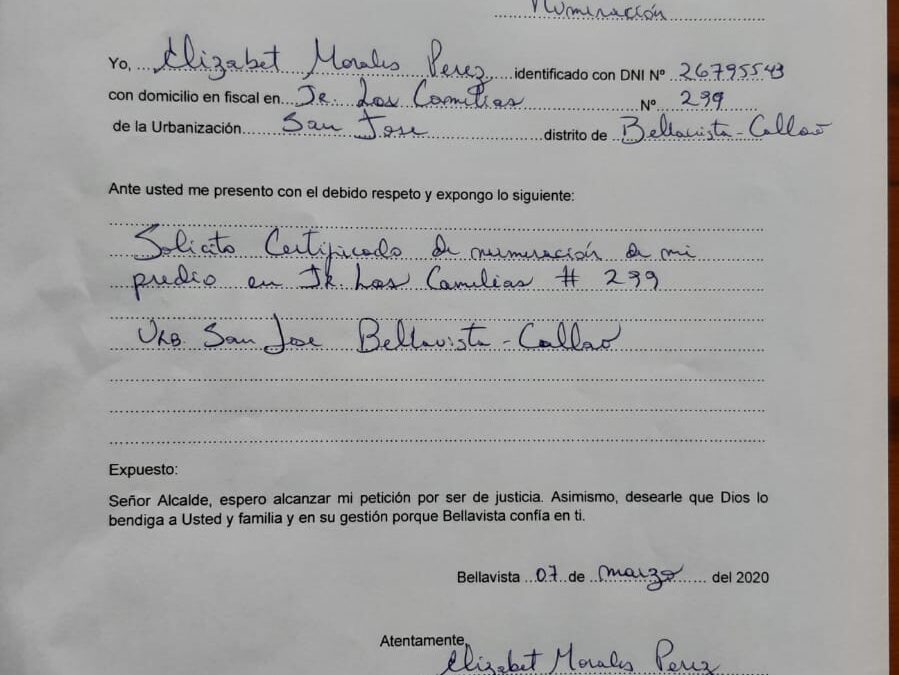 Numeración
Yo, Elizabet Morales Perez identificado con DNI Nº 26795543
con domicilio en fiscal en Jr. Los Camilias Nº 299
de la Urbanización San Jose distrito de Bellavista-Callao
Ante usted me presento con el debido respeto y expongo lo siguiente:
Solicito Certificado de numeración de mi
predio en Jr. Los Camilias # 299
Urb. San Jose Bellavista-Callao
Expuesto:
Señor Alcalde, espero alcanzar mi petición por ser de justicia. Asimismo, desearle que Dios lo
bendiga a Usted y familia y en su gestión porque Bellavista confía en ti.
Bellavista 07 de marzo del 2020
Atentamente,
Elizabet Morales Perez